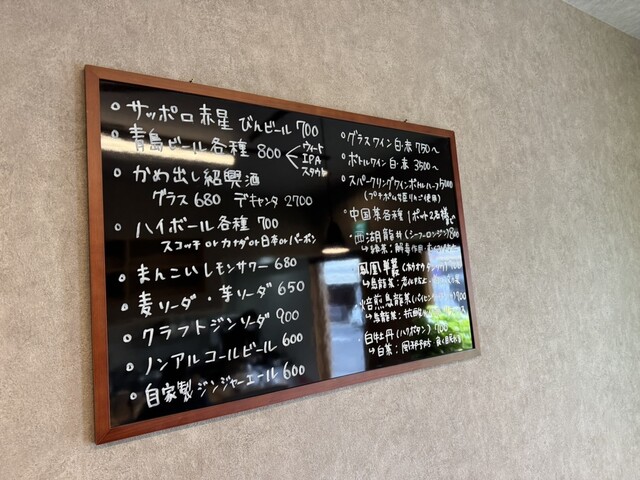 ○ サッポロ赤星 びんビール 700
○ 青島ビール各種 800
ウィート
IPA
スタウト
○ かめ出し紹興酒
グラス 680 デキャンタ 2700
○ ハイボール各種 700
スコッチ or カナダ or 日本 or バーボン
○ まんこいレモンサワー 680
○ 麦ソーダ・芋ソーダ 650
○ クラフトジンソーダ 900
○ ノンアルコールビール 600
○ 自家製ジンジャーエール 600
○ グラスワイン 白・赤 750〜
○ ボトルワイン 白・赤 3500〜
○ スパークリングワインボトルハーフ 5000
○ 中国茶各種 1ポット2名様
・西湖龍井 (シーフーロンジン) 800
↳ 緑茶：解毒作用・
鳳凰単叢
↳ 烏龍茶：
・焙煎烏龍茶 900
↳ 烏龍茶：
・白牡丹 (ハクボタン) 900
↳ 白茶：